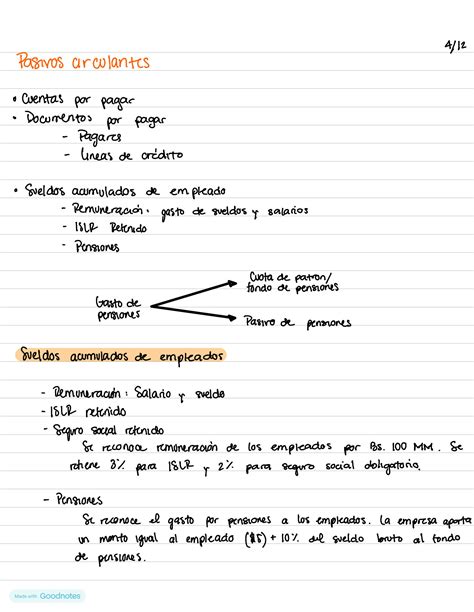 4/12
Pasivos circulantes
• Cuentas por pagar
• Documentos por pagar
- Pagares
- Lineas de crédito
• Sueldos acumulados de empleado
- Remuneración: gasto de sueldos y salarios
- ISLR Retenido
- Pensiones
Cuota de patron/
fondo de pensiones
Gasto de
pensiones
Pasivo de pensiones
Sueldos acumulados de empleados
- Remuneración: Salario y sueldo
- ISLR retenido
- Seguro social retenido
Se reconoce remuneración de los empleados por Bs. 100 MM. Se
retiene 3% para ISLR y 2% para seguro social obligatorio.
- Pensiones
Se reconoce el gasto por pensiones a los empleados. La empresa aporta
un monto igual al empleado + 10% del sueldo bruto al fondo
de pensiones.
Made with Goodnotes